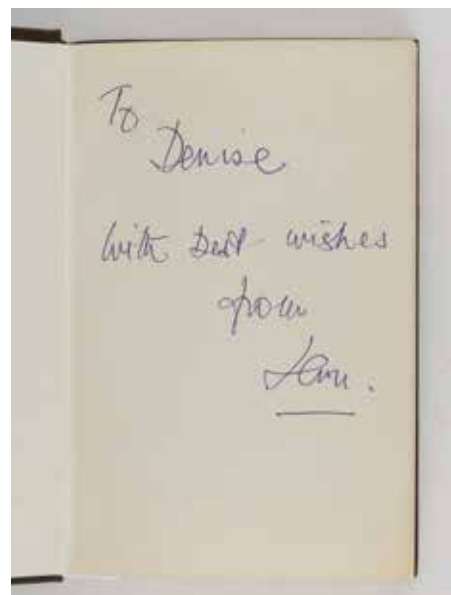 To
Denise
With best wishes
from